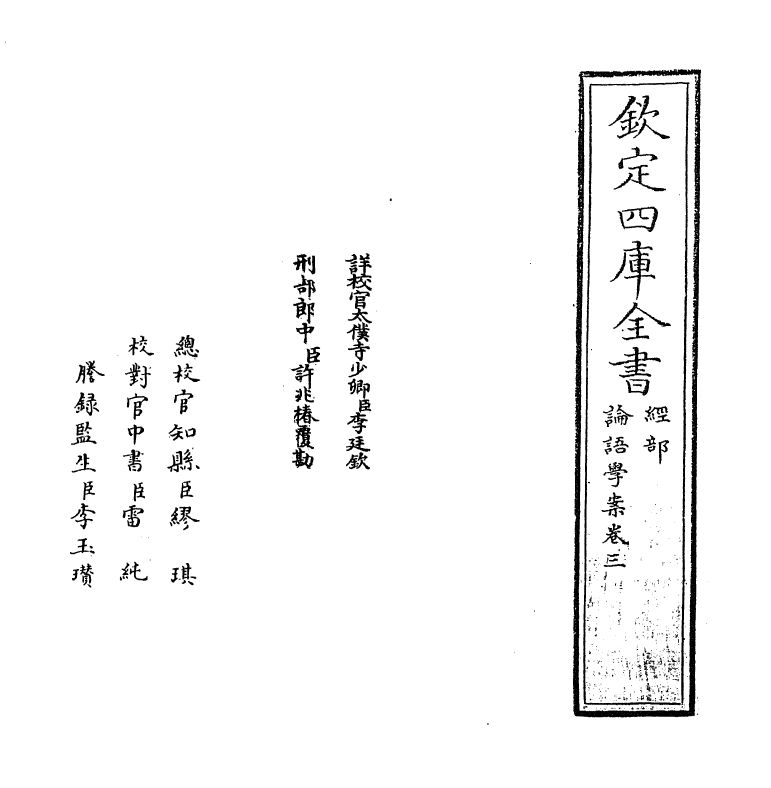 欽定四庫全書
經部
論語學案卷三
詳校官太僕寺少卿臣李廷欽
刑部郎中臣許兆椿覆勘
總校官知縣臣繆琪
校對官中書臣雷純
謄錄監生臣李玉瓚